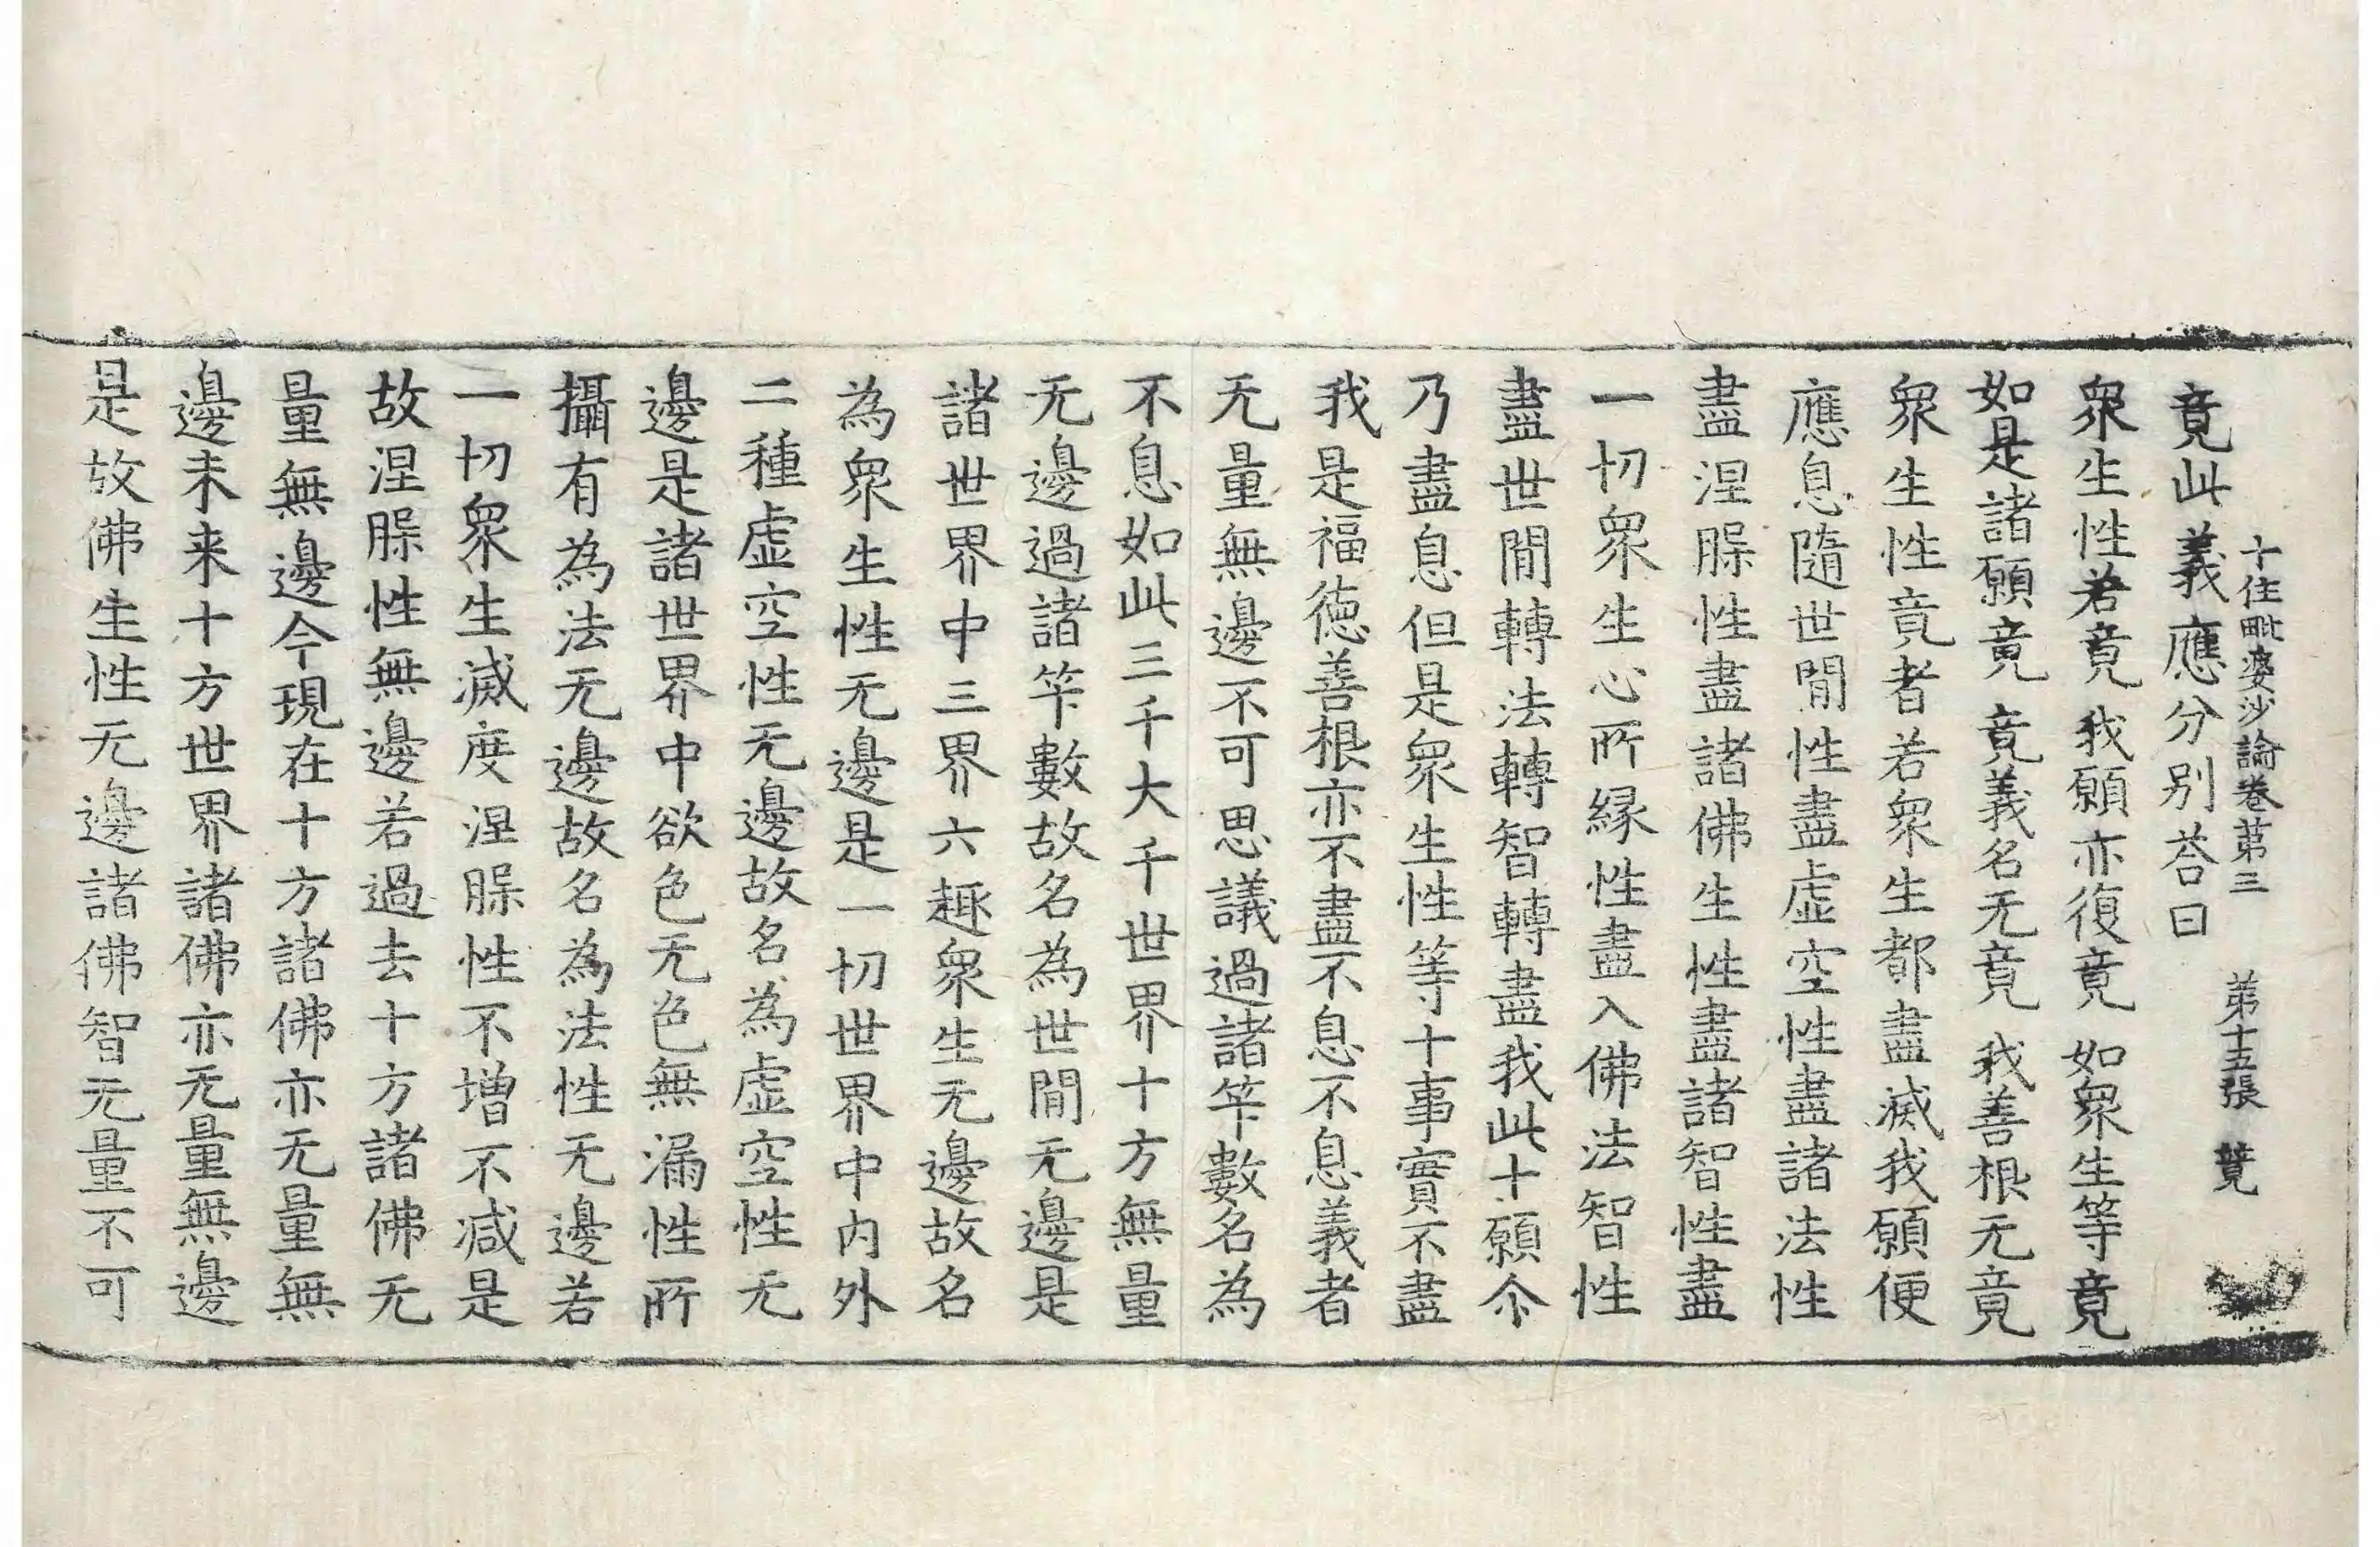 十住毗婆沙論卷第三　第十五張　竟
竟此義應分別荅曰
衆生性若竟　我願亦復竟　如衆生等竟
如是諸願竟　竟義名无竟　我善根无竟
衆生性竟者若衆生都盡滅我願便
應息隨世閒性盡虛空性盡諸法性
盡涅槃性盡諸佛生性盡諸智性盡
一切衆生心所緣性盡入佛法智性
盡世閒轉法轉智轉盡我此十願尒
乃盡息但是衆生性等十事實不盡
我是福德善根亦不盡不息不息義者
无量無邊不可思議過諸筭數名為
不息如此三千大千世界十方無量
无邊過諸筭數故名為世間无邊是
諸世界中三界六趣衆生无邊故名
為衆生性无邊是一切世界中內外
二種虛空性无邊故名為虛空性无
邊是諸世界中欲色无色無漏性所
攝有為法无邊故名為法性无邊若
一切衆生滅度涅槃性不增不減是
故涅槃性無邊若過去十方諸佛无
量無邊今現在十方諸佛亦无量無
邊未来十方世界諸佛亦无量無邊
是故佛生性无邊諸佛智无量不可